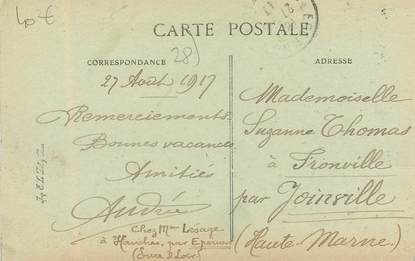 CARTE POSTALE
28)
CORRESPONDANCE
ADRESSE
27 Août 1917
Remerciements.
Bonnes vacances
Amitiés
Andrée
Chez Mme Lesage
à Hanches, par Epernon
(Eure & Loir)
Mademoiselle
Suzanne Thomas
à Fronville
par Joinville
(Haute Marne)